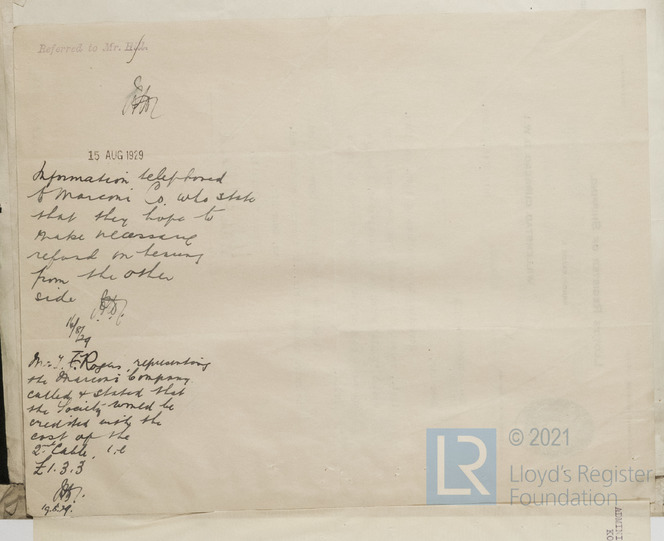 Referred to Mr.
15 AUG 1929
Information telephoned
to Marconi Co. who state
that they hope to
make necessary
refund on hearing
from the other
side
16/8/29
Mr. J. F. Rogers, representing
the Marconi Company
called & stated that
the Society would be
credited with the
cost of the
2nd Cable, i.e
£1.3.3
19.8.29.
LR
© 2021
Lloyd's Register
Foundation